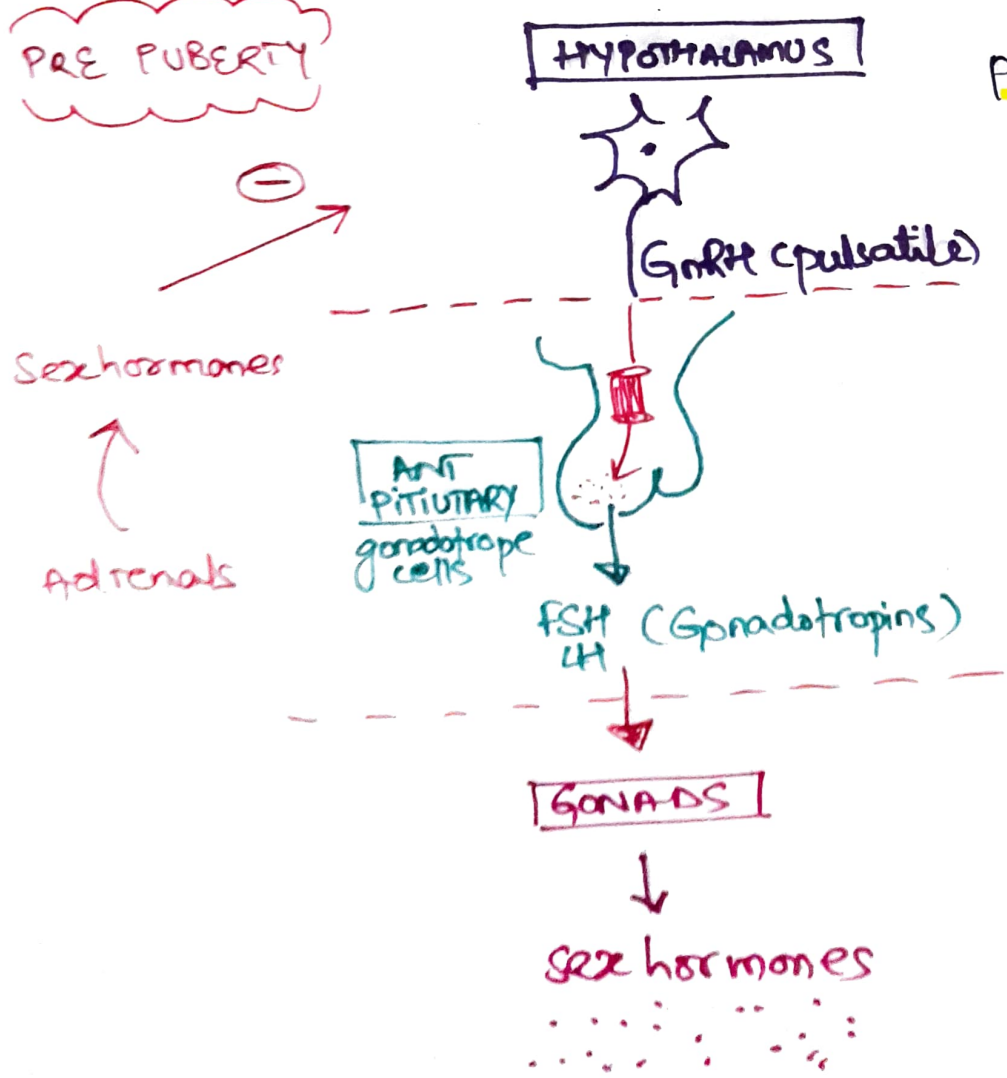 PRE PUBERTY
HYPOTHALAMUS
GnRH (pulsatile)
Sexhormones
Adrenals
ANT
PITIUTARY
gonadotrope
cells
FSH (Gonadotropins)
LH
GONADS
sex hormones